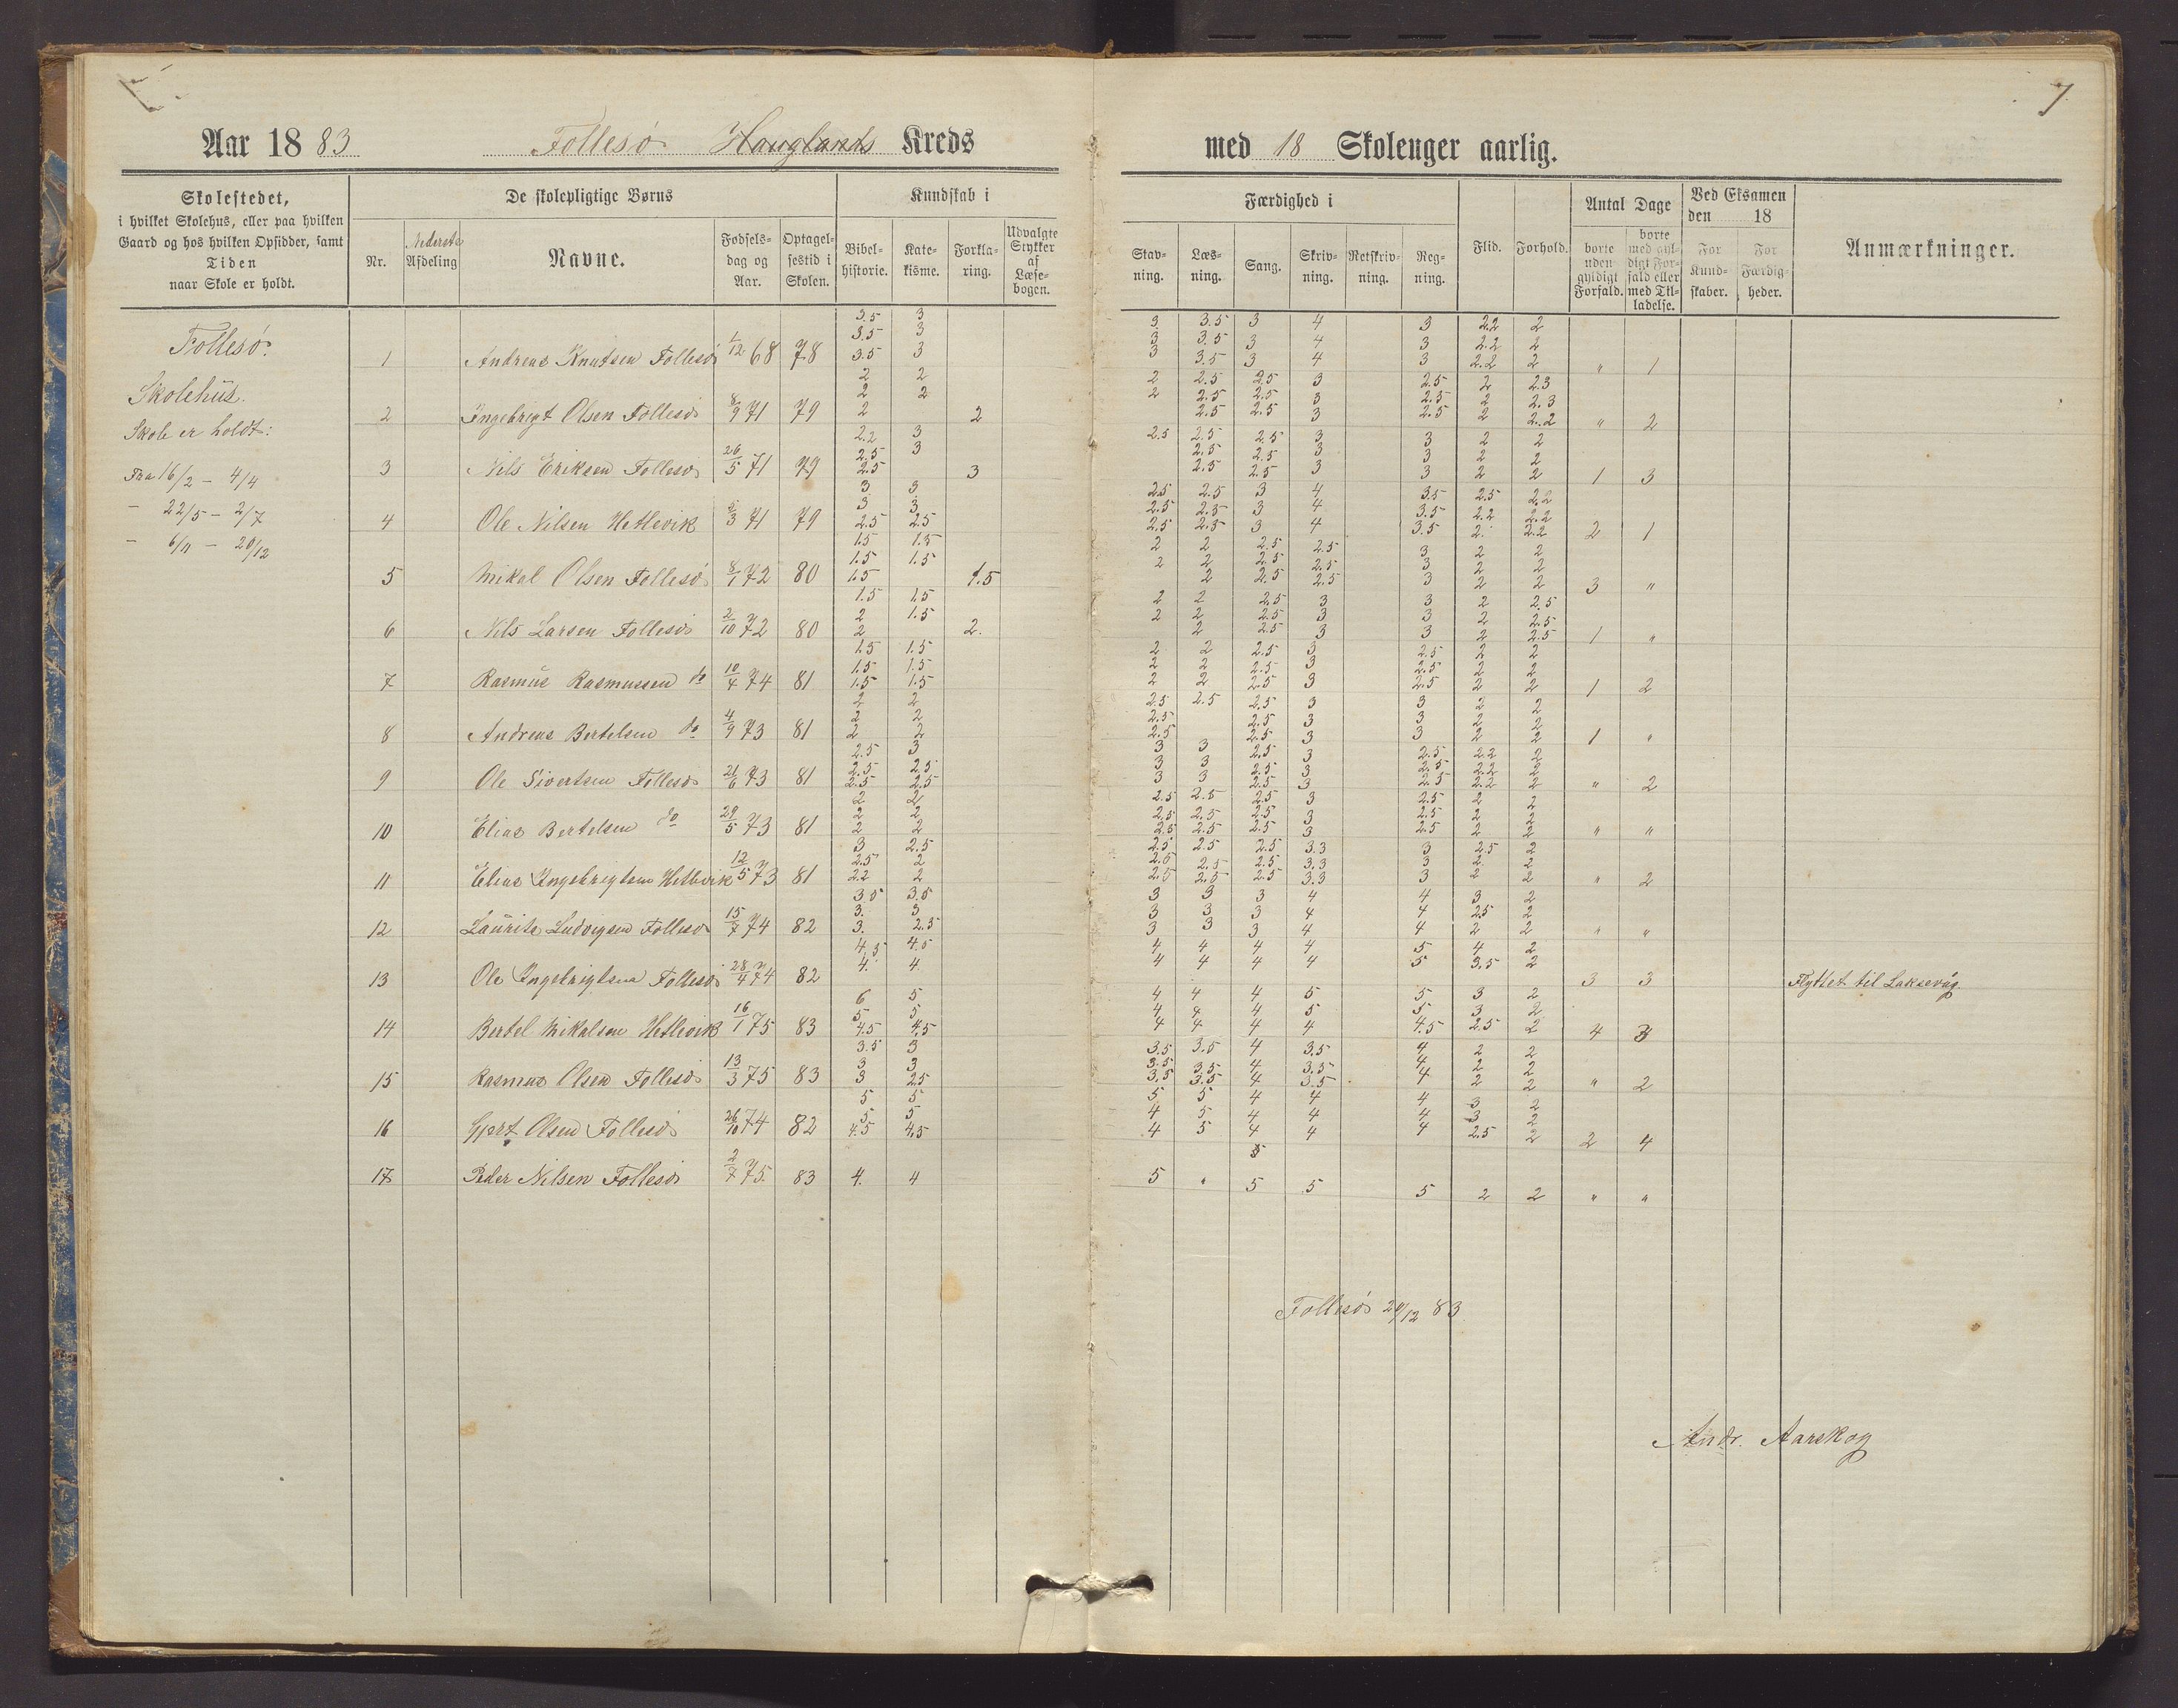 7
Aar 1883 Follesö Hauglands Kreds med 18 Skoleuger aarlig.
Skolestedet,
i hvilket Skolehus, eller paa hvilken
Gaard og hos hvilken Opsidder, samt
Tiden
naar Skole er holdt.
De skolepligtige Børns
Nr.
Nederste Afdeling
Navne.
Fødsels-
dag og
Aar.
Optagel-
sestid i
Skolen.
Kundskab i
Bibel-
historie.
Kate-
kisme.
Forkla-
ring.
Udvalgte
Stykker
af
Læse-
bogen.
Færdighed i
Stav-
ning.
Læs-
ning.
Sang.
Skriv-
ning.
Retskriv-
ning.
Reg-
ning.
Flid.
Forhold.
Antal Dage
borte
uden
gyldigt
Forfald.
borte
med gyl-
digt For-
fald eller
med Til-
ladelse.
Ved Eksamen
den 18
For
Kund-
skaber.
For
Færdig-
heder.
Anmærkninger.
Follesö.
Skolehus.
Skole er holdt:
Fra 16/2 – 4/4
– 22/5 – 2/7
– 6/11 – 20/12
3.5 3 3 3.5 3 4 3 2.2 2
3.5 3 3 3.5 3 4 3 2.2 2
1 Andreas Knutsen Follesö 1/12 68 78 3.5 3 3 3.5 3 4 3 2.2 2 " 1
2 2 2 2.5 2.5 3 2.5 2 2.3
2 2 2 2.5 2.5 3 2.5 2 2.3
2 Ingebrigt Olsen Follesö 8/9 71 79 2 2 2.5 2.5 3 2.5 2 2.2 " 2
2.2 3 2.5 2.5 2.5 3 3 2 2
2.5 3 2.5 2.5 3 3 2 2
3 Nils Eriksen Follesö 26/5 71 79 2.5 3 2.5 2.5 3 3 2 2 1 3
3 3 2.5 2.5 3 4 3.5 2.5 2.2
3 3 2.5 2.5 3 4 3.5 2.2 2.2
4 Ole Nilsen Hetlevik 2/3 71 79 2.5 2.5 2.5 2.5 3 4 3.5 2. 2.2 2 1
1.5 1.5 2 2 2.5 2.5 3 2 2
1.5 1.5 2 2 2.5 2.5 3 2 2
5 Mikal Olsen Follesö 8/1 72 80 1.5 1.5 2 2.5 2.5 3 2 2 3 "
1.5 1.5 2 2 2.5 3 3 2 2.5
2 1.5 2 2 2.5 3 3 2 2.5
6 Nils Larsen Follesö 2/10 72 80 2 2. 2 2.5 3 3 2 2.5 1 "
1.5 1.5 2 2 2.5 3 2.5 2 2
1.5 1.5 2 2 2.5 3 2.5 2 2
7 Rasmus Rasmussen do 10/4 74 81 1.5 1.5 2 2 2.5 3 2.5 2 2 1 2
2 2 2.5 2.5 2.5 3 3 2 2
2 2 2.5 2.5 3 3 2 2
8 Andreas Bertelsen do 4/9 73 81 2 2 2.5 2.5 3 3 2 2 1 "
2.5 3 3 3 2.5 3 2.5 2.2 2
2.5 2.5 3 3 2.5 3 2.5 2.2 2
9 Ole Sivertsen Follesö 21/6 73 81 2.5 2.5 3 3 2.5 3 2.5 2.2 2 " 2
2 2 2.5 2.5 2.5 3 2.5 2 2
2 2 2.5 2.5 2.5 3 2.5 2 2
10 Elias Bertelsen do 29/5 73 81 2 2 2.5 2.5 2.5 3 2.5 2 2 " "
3 2.5 2.5 2.5 2.5 3.3 3 2.5 2
2.5 2 2.5 2.5 2.5 3.3 3 2 2
11 Elias Ingebrigtsen Hetlevik 12/5 73 81 2.2 2 2.5 2.5 2.5 3.3 3 2 2 " 2
3.5 3.5 3 3 3 4 4 3 2
3. 3 3 3 3 4 4 2.5 2
12 Laurits Ludvigsen Follesö 15/7 74 82 3. 2.5 3 3 3 4 4 2 2 " "
4.5 4.5 4 4 4 4 5 4 2
4. 4 4 4 4 4 5 3.5 2
13 Ole Ingebrigtsen Follesö 28/4 74 82 3 3 Flyttet til Laksevåg.
6 5 4 4 4 5 5 3 2
5 5 4 4 4 5 5 3 2
14 Bertel Mikalsen Hetlevik 16/1 75 83 4.5 4.5 4 4 4 4 4.5 2.5 2 4 3
3.5 3 3.5 3.5 4 3.5 4 2 2
3 3 3.5 3.5 4 3.5 4 2 2
15 Rasmus Olsen Follesö 13/3 75 83 3 2.5 3.5 3.5 4 3.5 4 2 2 " 2
5 5 5 5 4 4 4 3 2
5 5 4 5 4 4 4 3 2
16 Gjert Olsen Follesö 26/10 74 82 4.5 4.5 4 5 4 4 4 2.5 2 2 4
17 Peder Nilsen Follesö 2/7 75. 83 4. 4 5 " 5 5 5 2 2 " "
Follesö 20/12 83
Andr. Aarskog